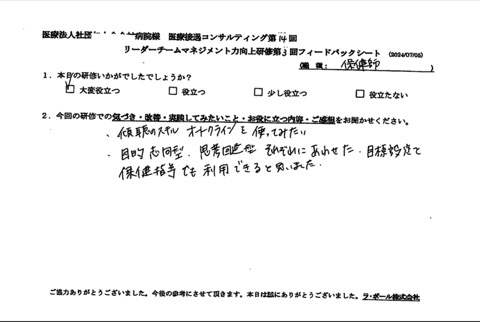 医療法人社団 病院様 医療接遇コンサルティング第14回
リーダーチームマネジメント力向上研修第3回フィードバックシート (2024/07/05)
(職種: 保健師 )
1.本日の研修いかがでしたでしょうか?
大変役立つ 役立つ 少し役立つ 役立たない
2.今回の研修での気づき・改善・実践してみたいこと・お役に立つ内容・ご感想をお聞かせください。
・傾聴のスキル オートクラインを使ってみたい
・目的志向型、思考回避型 それぞれにあわせた、目標設定で
保健指導でも利用できると思いました。
ご協力ありがとうございました。今後の参考にさせて頂きます。本日は誠にありがとうございました。ラ・ポール株式会社